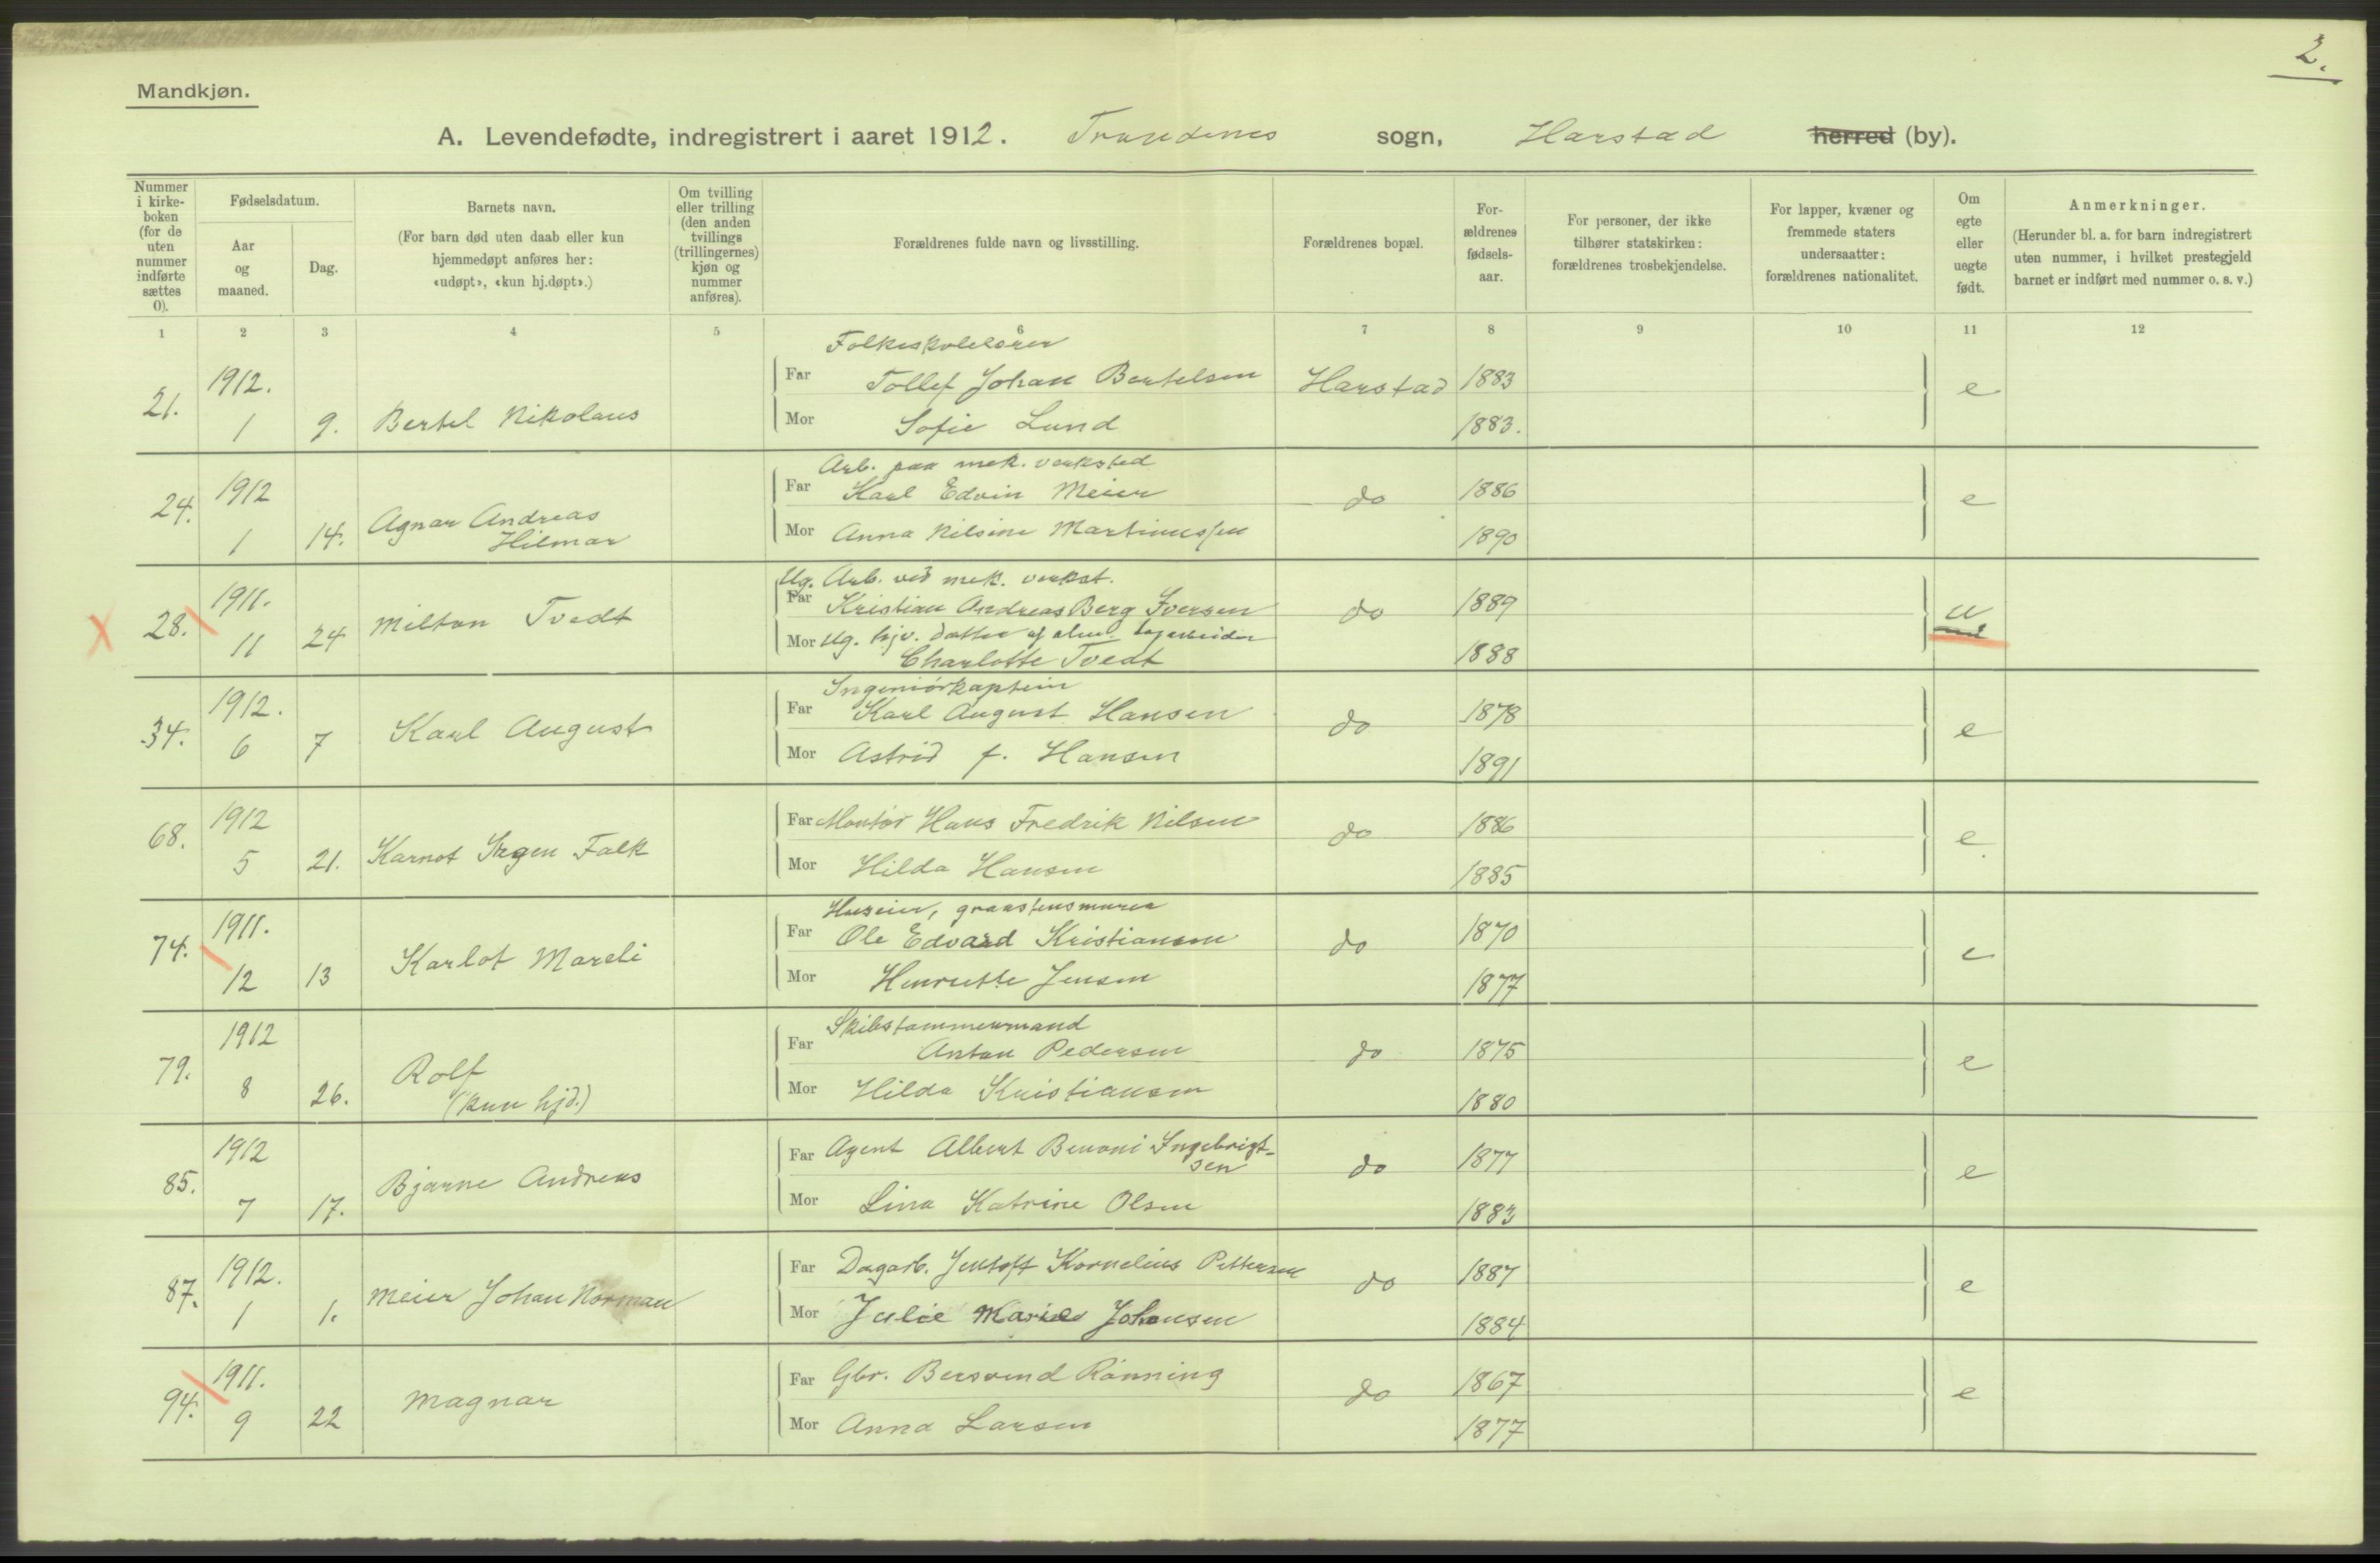 2.
Mandkjøn.
A. Levendefødte, indregistrert i aaret 1912. Trondenes sogn, Harstad herred (by).
Nummer i kirkeboken (for de uten nummer indførte sættes 0).
Fødselsdatum.
Aar og maaned.
Dag.
Barnets navn.
(For barn død uten daab eller kun hjemmedøpt anføres her: «udøpt», «kun hj.døpt».)
Om tvilling eller trilling (den anden tvillings (trillingernes) kjøn og nummer anføres).
Forældrenes fulde navn og livsstilling.
Forældrenes bopæl.
Forældrenes fødselsaar.
For personer, der ikke tilhører statskirken: forældrenes trosbekjendelse.
For lapper, kvæner og fremmede staters undersaatter: forældrenes nationalitet.
Om egte eller uegte født.
Anmerkninger.
(Herunder bl. a. for barn indregistrert uten nummer, i hvilket prestegjeld barnet er indført med nummer o. s. v.)
1 2 3 4 5 6 7 8 9 10 11 12
Folkeskolelærer
21. 1912. Far Tollef Johan Bertelsen Harstad 1883 e
1 9. Bertel Nikolaus Mor Sofie Lund 1883.
Arb. paa mek. verksted
24. 1912 Far Karl Edvin Meier do 1886 e
1 14. Agnar Andreas Hilmar Mor Anna Nilsine Martinussen 1890
Ug. Arb. ved mek. verkst.
X 28. 1911. Far Kristian Andreas Berg Iversen do 1889 u
11 24 Milton Tvedt Mor Ug. hjv. datter af
Charlotte Tvedt 1888
Ingeniørkaptein
34. 1912. Far Karl August Hansen do 1878 e
6 7 Karl August Mor Astrid f. Hansen 1891
68. 1912 Far Montør Hans Fredrik Nilsen do 1886 e
5 21. Karnot Falk Mor Hilda Hansen 1885
Huseier, graastensmurer
74. 1911. Far Ole Edvard Kristiansen do 1870 e
12 13 Karlot Mareli Mor Henriette Jensen 1877
Skibstømmermand
79. 1912 Far Anton Pedersen do 1875 e
8 26. Rolf (kun hjd.) Mor Hilda Kristiansen 1880
85. 1912 Far Agent Albert Benoni Ingebrigtsen do 1877 e
7 17. Bjarne Andreas Mor Lina Katrine Olsen 1883
87. 1912. Far Dagarb. Jentoft Kornelius Pettersen do 1887 e
1 1. Meier Johan Norman Mor Julie Marie Johansen 1884
94. 1911. Far Gbr. Bersvend Rønning do 1867 e
9 22 Magnar Mor Anna Larsen 1877